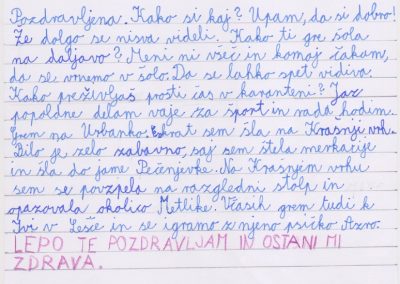 Pozdravljena. Kako si kaj? Upam, da si dobro!
Že dolgo se nisva videli. Kako ti gre šola
na daljavo? Meni ni všeč in komaj čakam,
da se vrnemo v šolo. Da se lahko spet vidiva.
Kako preživljaš prosti čas v karanteni? Jaz
popoldne delam vaje za šport in rada hodim.
Grem na Urbanko. Enkrat sem šla na Krasnji vrh.
Bilo je zelo zabavno, saj sem štela markacije
in šla do jame Pečenjevke. Na Krašnjem vrhu
sem se povzpela na razgledni stolp in
opazovala okolico Metlike. Včasih grem tudi k
Ivi v Lešče in se igramo z njeno psičko Azro.
LEPO TE POZDRAVLJAM IN OSTANI MI
ZDRAVA.